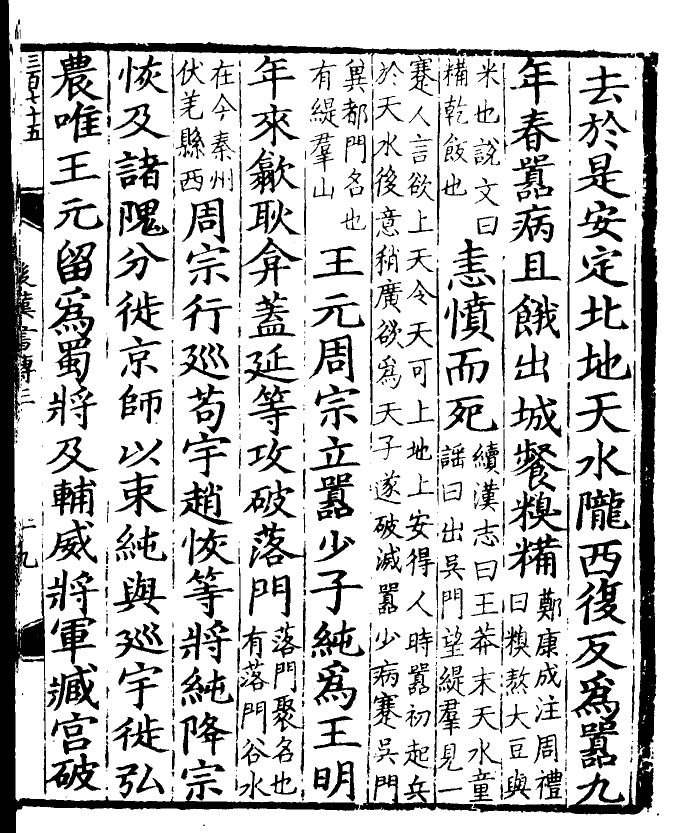 去於是安定北地天水隴西復反爲囂九
年春囂病且餓出城餐糗糒
鄭康成注周禮
曰糗熬大豆與
米也說文曰
糒乾飯也
恚憤而死
續漢志曰王莽末天水童
謡曰出吳門望緹羣見一
蹇人言欲上天令天可上地上安得人時囂初起兵
於天水後意稍廣欲爲天子遂破滅囂少病蹇吳門
冀都門名也
有緹羣山
王元周宗立囂少子純爲王明
年來歙耿弇蓋延等攻破落門
落門聚名也
有落門谷水
在今秦州
伏羌縣西
周宗行巡苟宇趙恢等將純降宗
恢及諸隗分徙京師以東純與巡宇徙弘
農唯王元留爲蜀將及輔威將軍臧宫破
三百七十五
後漢書傳三
十九